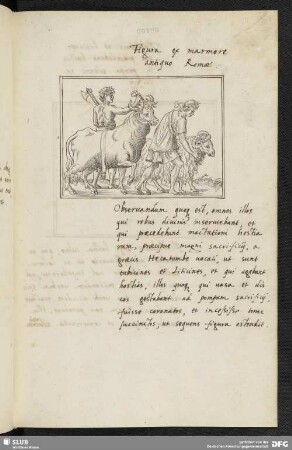 Figura ex marmore
antiquo Romae
Observandum quoq est, omnes illos
qui rebus divinis inserviebant et
qui procedebant mactationi hostia
rum, praecipue magni sacrificij, a
graecis. Hecatombe vocati, ut sunt
tubicines et liticines, et qui agebant
hostias, illos quoq qui vasa et dis
cos gestabant ad pompam sacrificij,
fuisse coronatos, et incessisse
succinctos, ut sequens figura ostendit.
SLUB
DFG